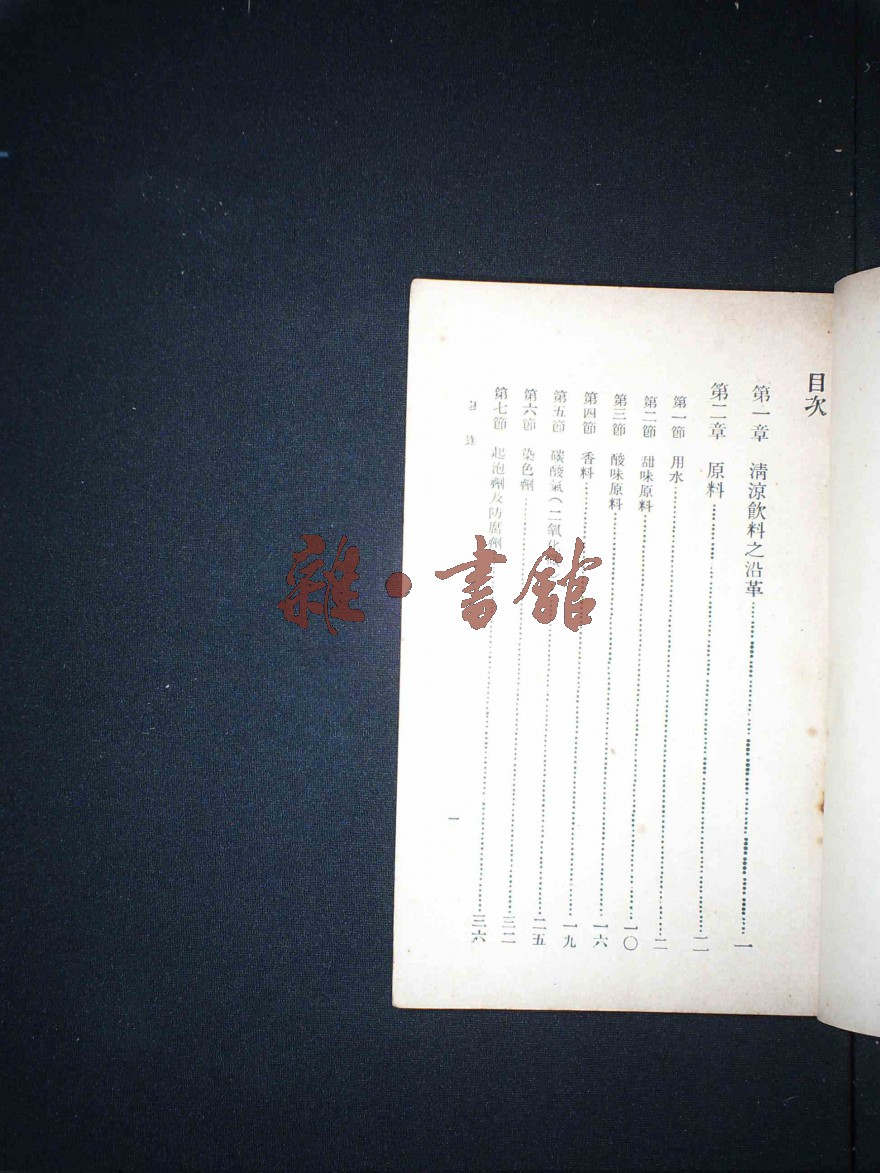 目次
第一章 清涼飲料之沿革…………一
第二章 原料…………二
第一節 用水…………二
第二節 甜味原料…………一〇
第三節 酸味原料…………一六
第四節 香料…………一九
第五節 碳酸氣(二氧化…………二五
第六節 染色劑…………三二
第七節 起泡劑及防腐劑…………三六
目
一
雜·書館